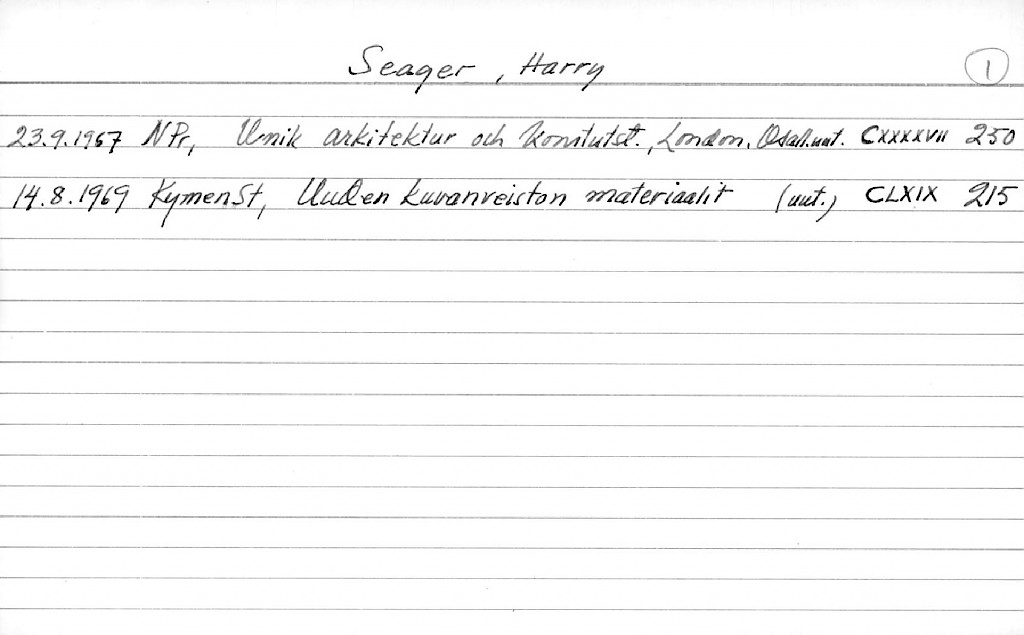 Seager, Harry 1
23.9.1967 NPr, Unik arkitektur och konstutst., London. Osall.uut. CXXXXVII 250
14.8.1969 KymenSt, Uuden kuvanveiston materiaalit (uut.) CLXIX 215